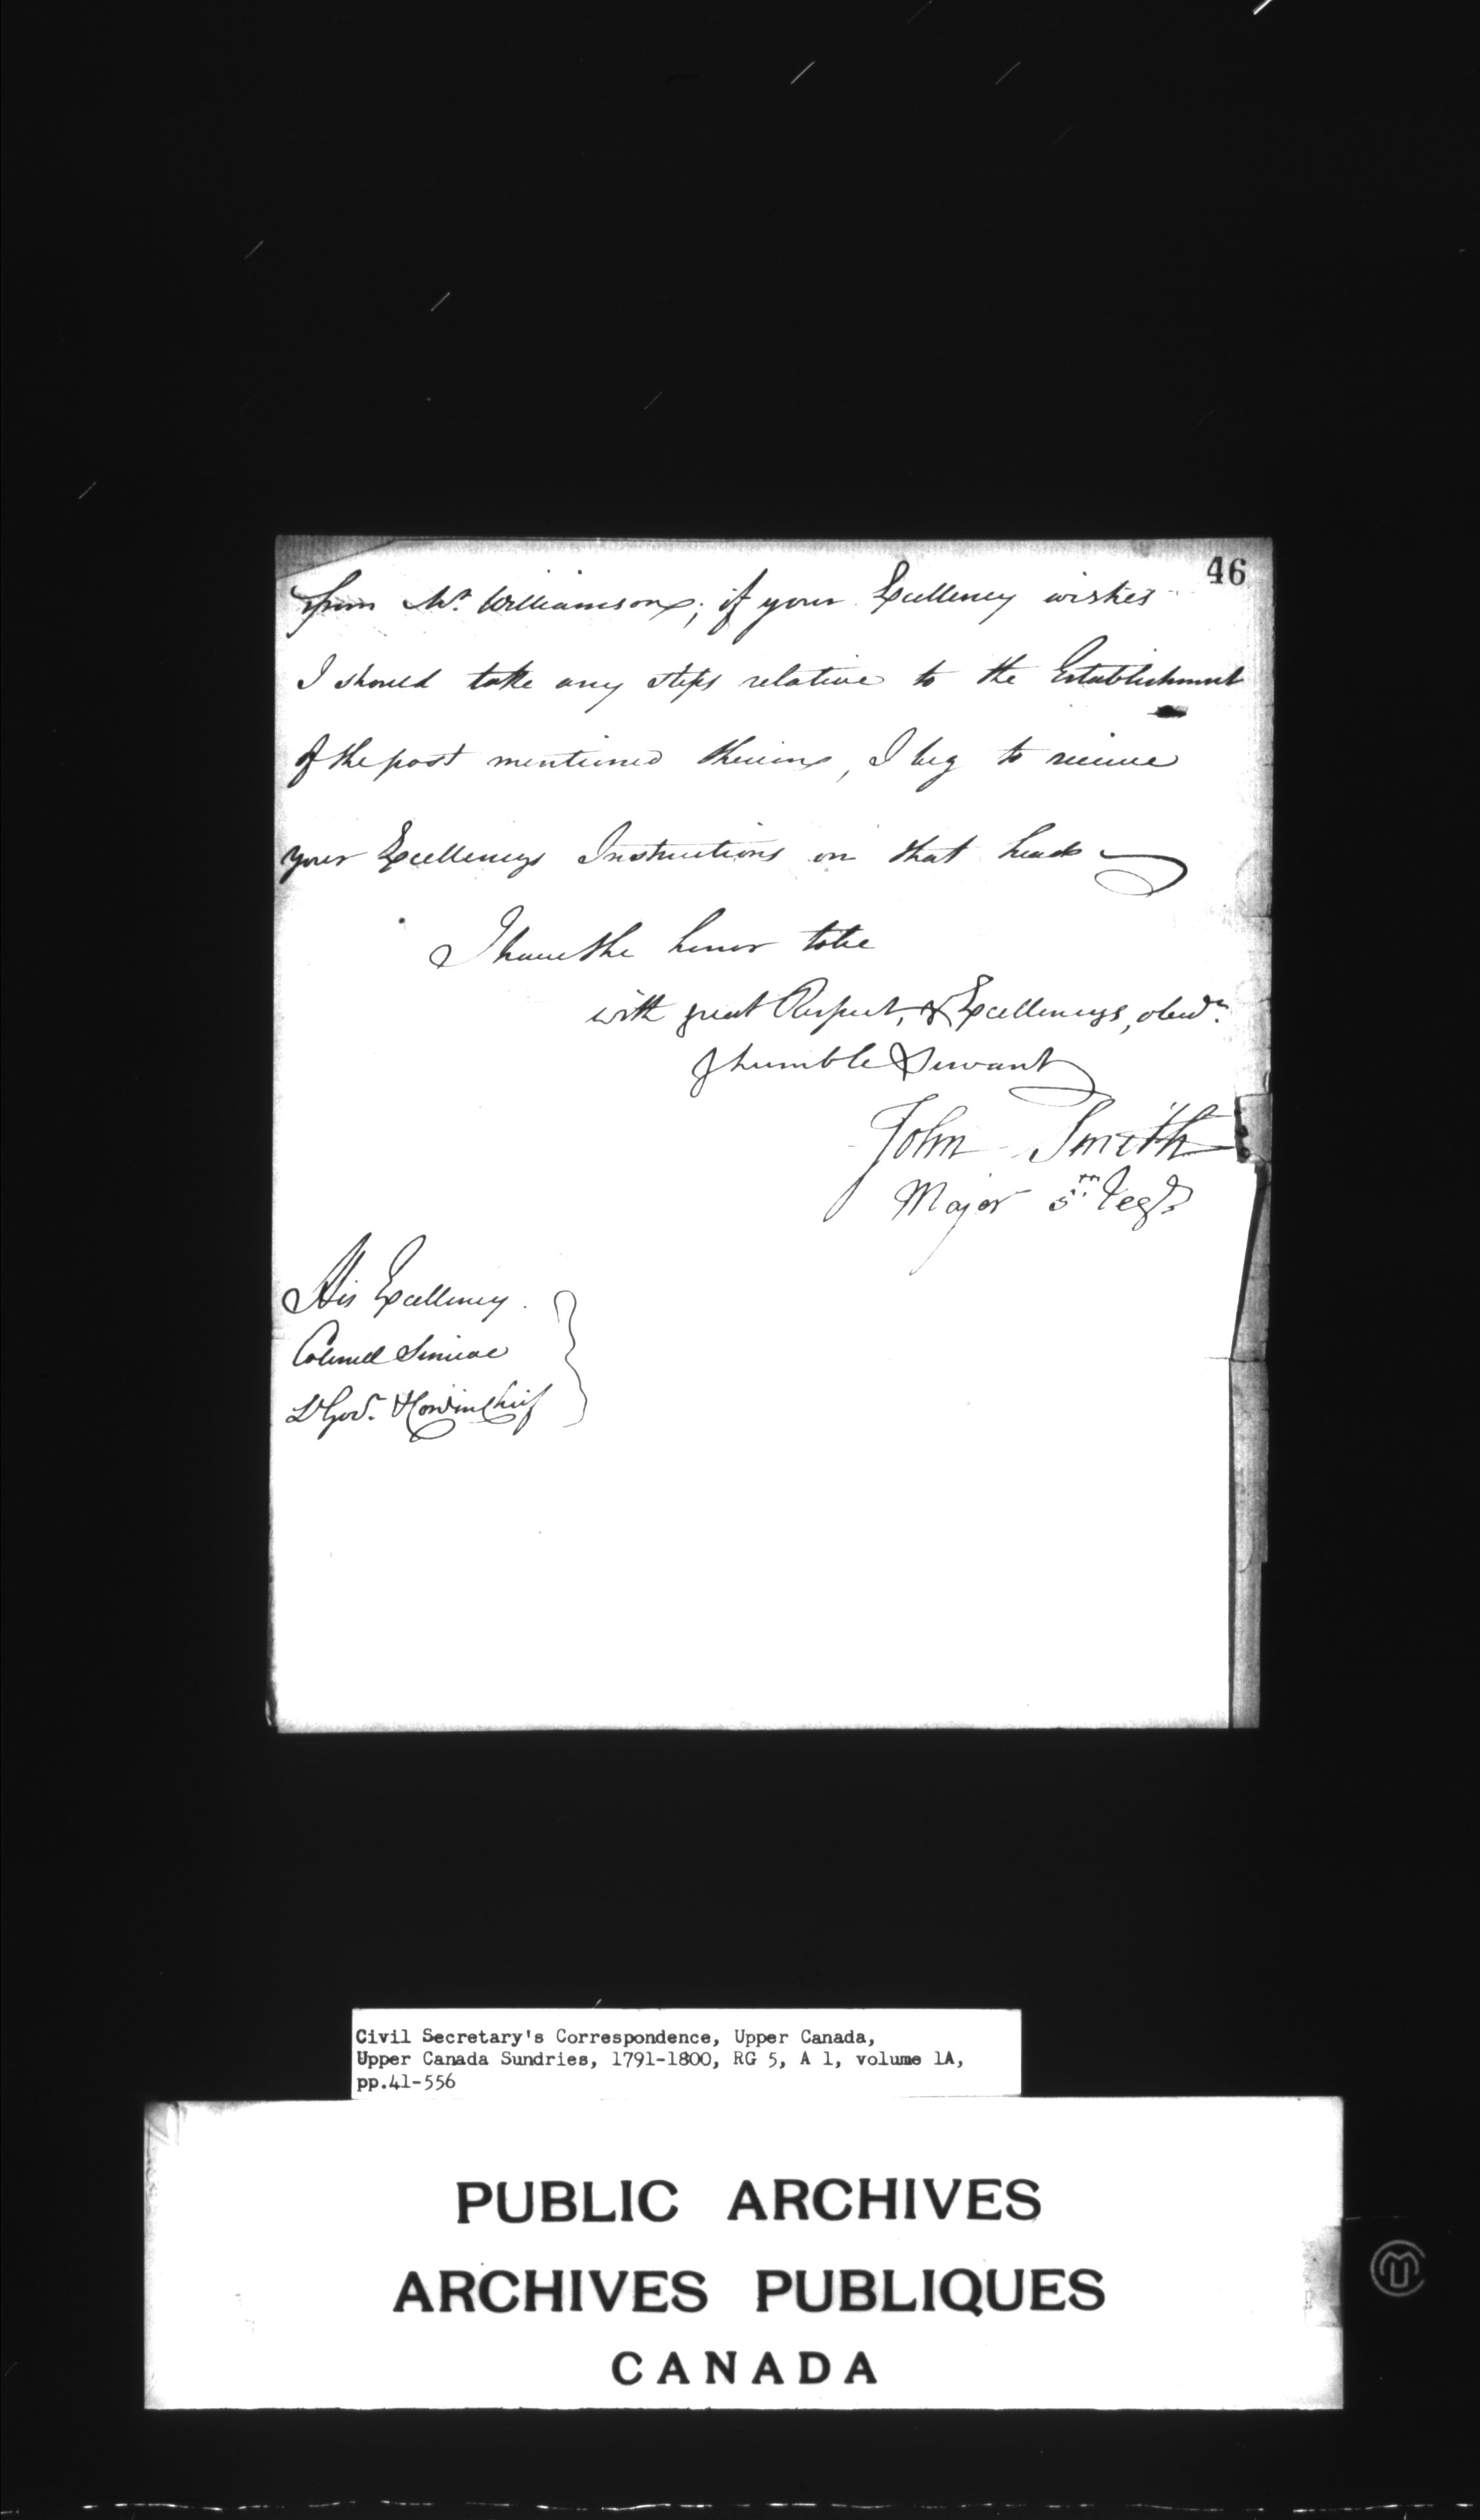 46
from Mr. Williamson; if your Excellency wishes
I should take any steps relative to the Establishment
of the post mentioned therein, I beg to receive
your Excellencys Instructions on that head
I have the honor to be
with great Respect, Yr Excellencys, obedt.
& humble Servant
John Smith
Major 5th Regt.
His Excellency
Colonel Simcoe
Lt Govr. & Com in Chief
Civil Secretary's Correspondence, Upper Canada,
Upper Canada Sundries, 1791-1800, RG 5, A 1, volume 1A,
pp.41-556
PUBLIC ARCHIVES
ARCHIVES PUBLIQUES
CANADA